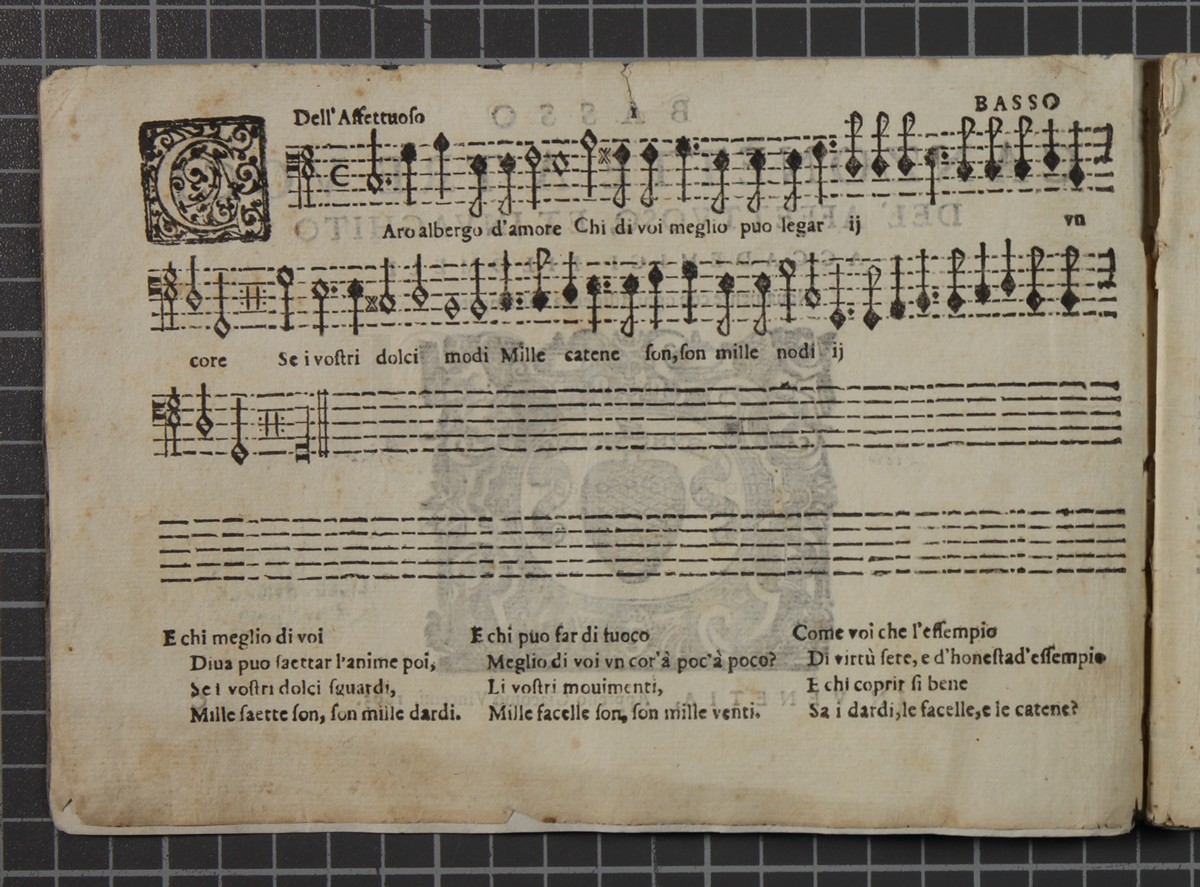 Dell'Affettuoso
1
BASSO
C
Aro albergo d'amore Chi di voi meglio puo legar ij vn
core Se i vostri dolci modi Mille catene son, son mille nodi ij
E chi meglio di voi
Diua puo saettar l'anime poi,
Se i vostri dolci sguardi,
Mille saette son, son mille dardi.
E chi puo far di fuoco
Meglio di voi vn cor'à poc'à poco?
Li vostri mouimenti,
Mille facelle son, son mille venti.
Come voi che l'essempio
Di virtù sete, e d'honestad'essempio
E chi coprir si bene
Sa i dardi, le facelle, e le catene?